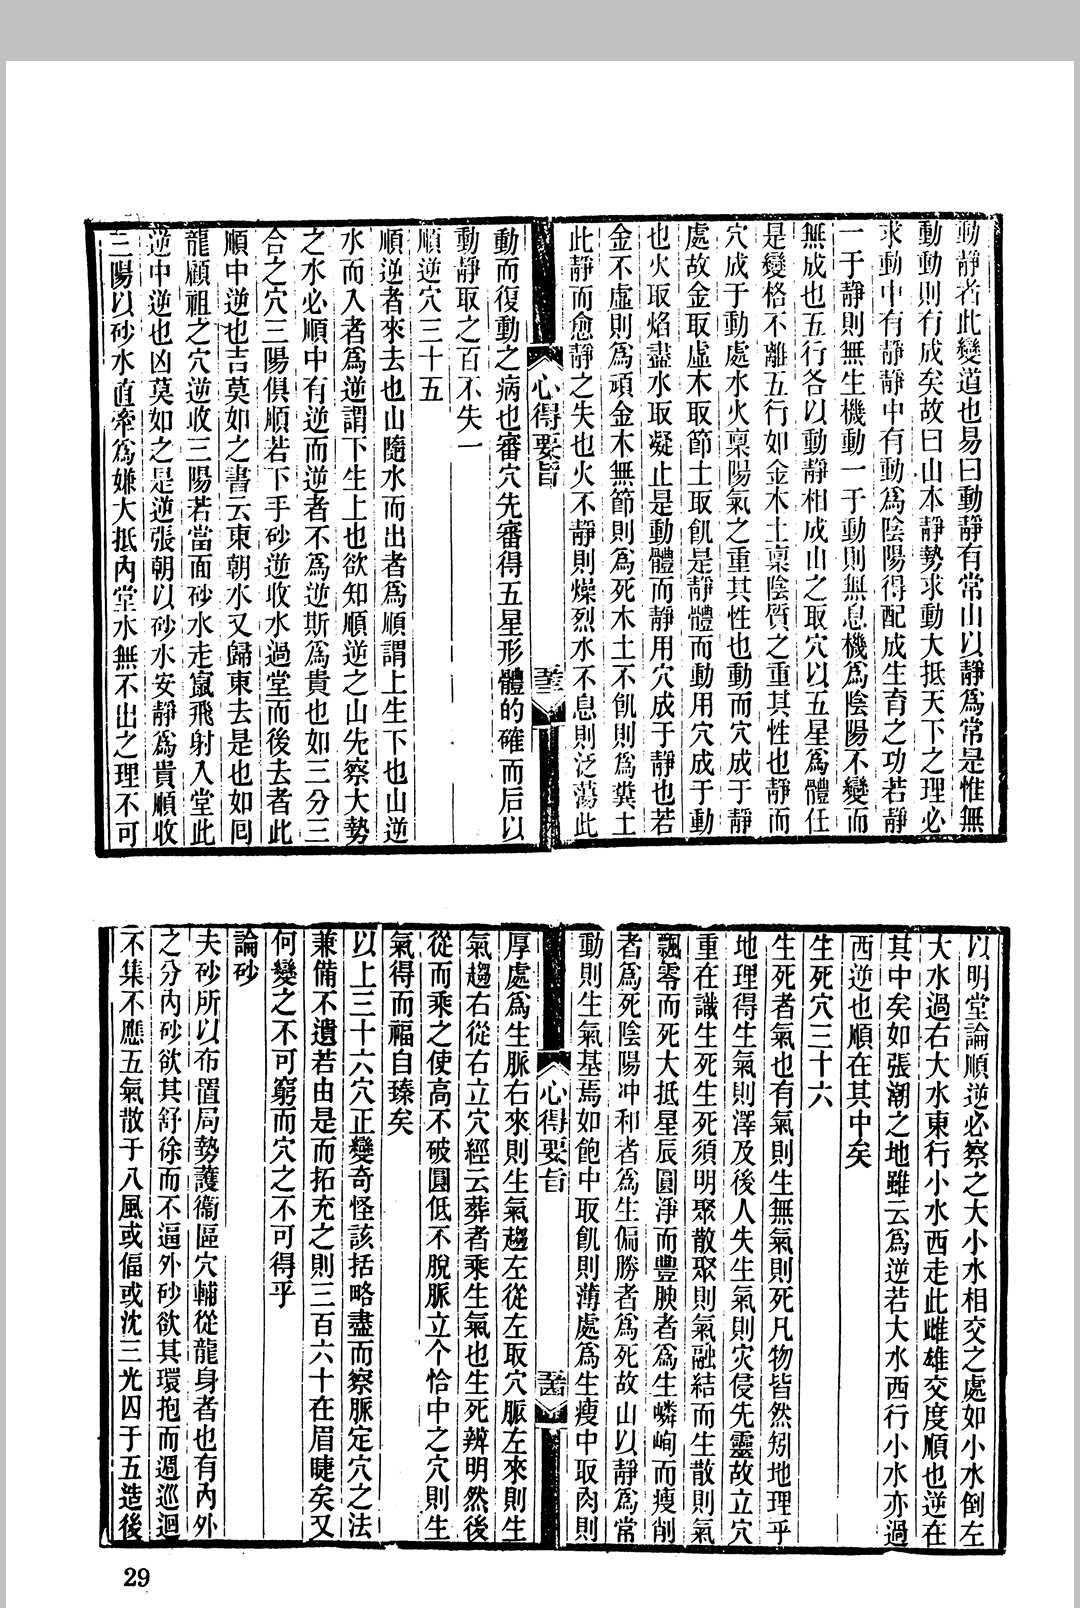 動靜者此變道也易曰動靜有常山以靜爲常是惟無
動動則有成矣故曰山本靜勢求動大抵天下之理必
求動中有靜靜中有動爲陰陽得配成生育之功若靜
一于靜則無生機動一于動則無息機爲陰陽不變而
無成也五行各以動靜相成山之取穴以五星爲體任
是變格不離五行如金木土稟陰質之重其性也靜而
穴成于動處水火稟陽氣之重其性也動而穴成于靜
處故金取虛木取節土取飢是靜體而動用穴成于動
也火取焰盡水取凝止是動體而靜用穴成于靜也若
金不虛則爲頑金木無節則爲死木土不飢則爲糞土
此靜而愈靜之失也火不靜則燥烈水不息則泛蕩此
心得要旨
動而復動之病也審穴先審得五星形體的確而后以
動靜取之百不失一
順逆穴三十五
順逆者來去也山隨水而出者爲順謂上生下也山逆
水而入者爲逆謂下生上也欲知順逆之山先察大勢
之水必順中有逆而逆者不爲逆斯爲貴也如三分三
合之穴三陽俱順若下手砂逆收水過堂而後去者此
順中逆也吉莫如之書云東朝水又歸東去是也如囘
龍顧祖之穴逆收三陽若當面砂水走竄飛射入堂此
逆中逆也凶莫如之是逆張朝以砂水安靜爲貴順收
三陽以砂水直牽爲嫌大抵內堂水無不出之理不可
以明堂論順逆必察之大小水相交之處如小水倒左
大水過右大水東行小水西走此雌雄交度順也逆在
其中矣如張潮之地雖云爲逆若大水西行小水亦過
西逆也順在其中矣
生死穴三十六
生死者氣也有氣則生無氣則死凡物皆然矧地理乎
地理得生氣則澤及後人失生氣則灾侵先靈故立穴
重在識生死生死須明聚散聚則氣融結而生散則氣
飄零而死大抵星辰圓淨而豐腴者爲生嶙峋而瘦削
者爲死陰陽冲和者爲生偏勝者爲死故山以靜爲常
動則生氣基焉如飽中取飢則薄處爲生瘦中取肉則
心得要旨
厚處爲生脈右來則生氣趨左從左取穴脈左來則生
氣趨右從右立穴經云葬者乘生氣也生死辨明然後
從而乘之使高不破圓低不脫脈立个恰中之穴則生
氣得而福自臻矣
以上三十六穴正變奇怪該括略盡而察脈定穴之法
兼備不遺若由是而拓充之則三百六十在眉睫矣又
何變之不可窮而穴之不可得乎
論砂
夫砂所以布置局勢護衞區穴輔從龍身者也有內外
之分內砂欲其舒徐而不逼外砂欲其環抱而週巡迴
不集不應五氣散于八風或偪或沈三光囚于五造後
29